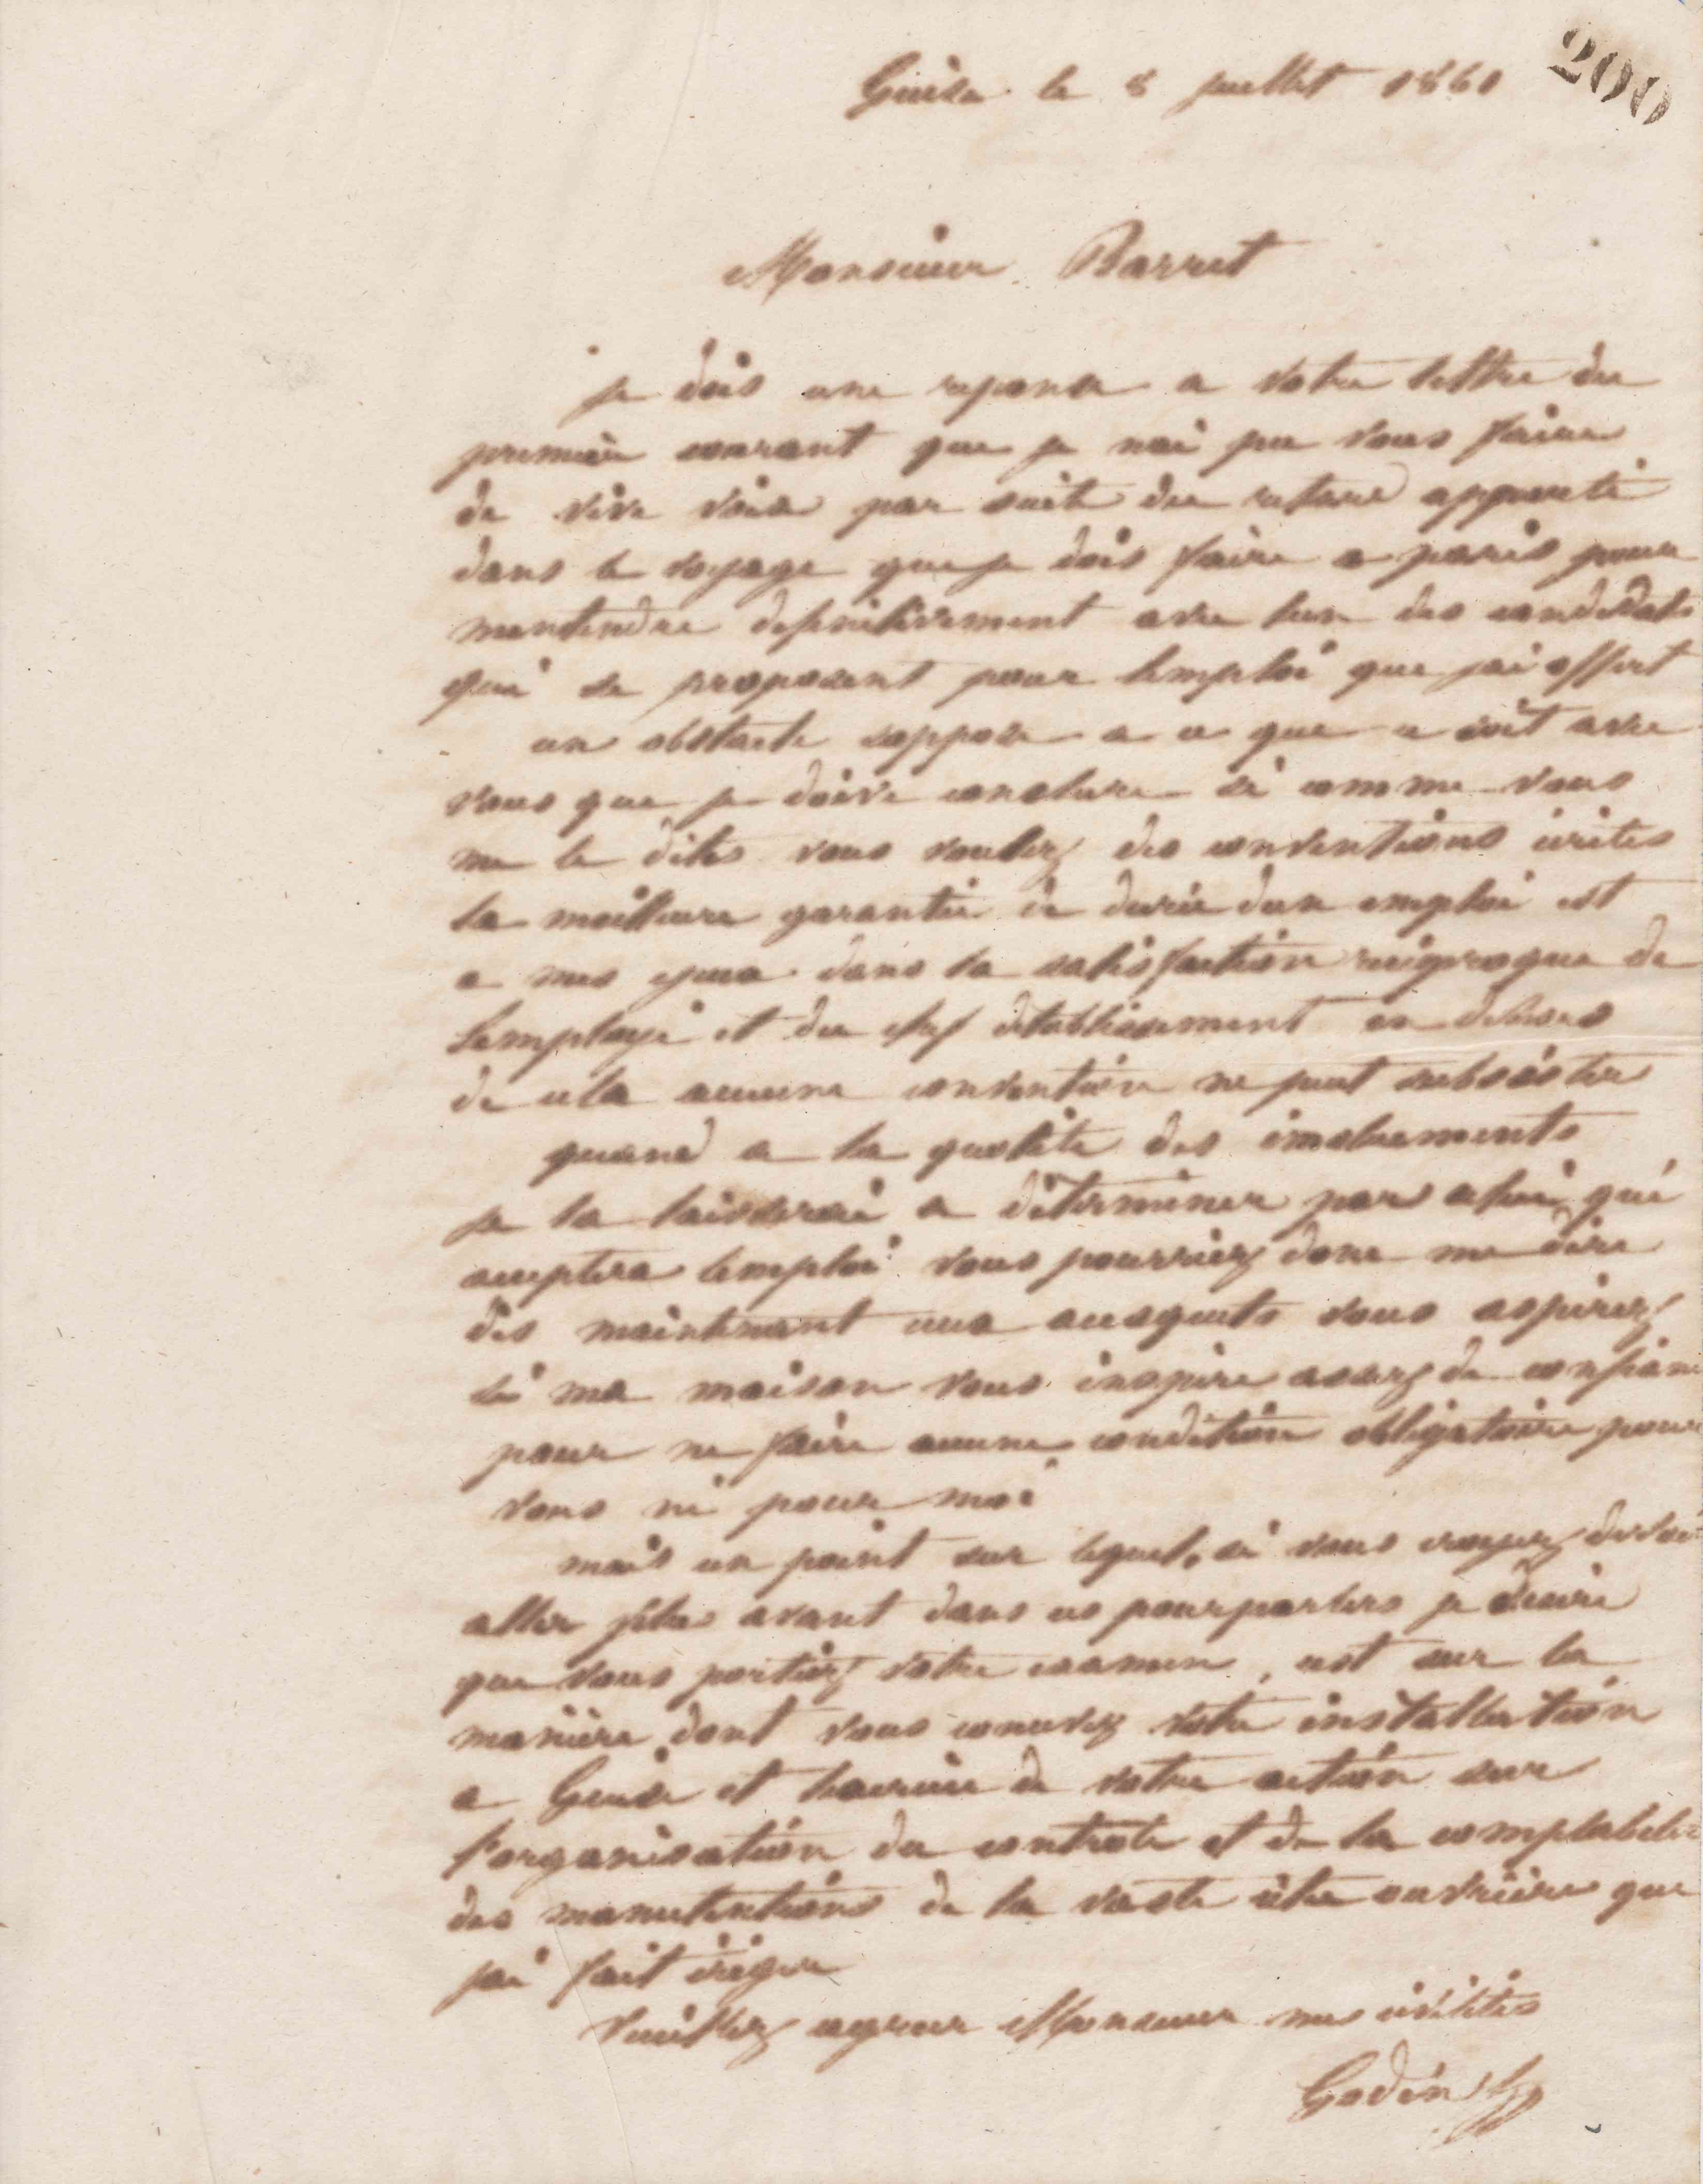 200
Guise le 8 juillet 1861
Monsieur Barret
je dois une reponse a votre lettre du
premier courant que je nai pu vous faire
de vive voix par suite du retard apporté
dans le voyage que je dois faire a paris pour
mentendre definitivement avec lun des candidats
qui se proposent pour lemploi que jai offert
un obstacle soppose a ce que ce soit avec
vous que je doive conclure si comme vous
me le dites vous voulez des conventions écrites
la meilleure garantie de durée dun emploi est
a mes yeux dans la satisfaction reciproque de
lemployé et du chef détablissement en dehors
de cela aucune convention ne peut subsister
quand a la quotité des émoluements
je la laisserai a déterminer par celui qui
acceptera lemploi vous pourriez donc me dire
dès maintenant ceux auxquels vous aspirez
si ma maison vous inspire assez de confiance
pour ne faire aucune condition obligatoire pour
vous ni pour moi
mais un point sur lequel, si vous croyez devoir
aller plus avant dans ces pourparlers je désire
que vous portiez votre examen, cest sur la
manière dont vous concevez votre installation
a Guise et de votre action sur
l'organisation du controle et de la comptabilité
des manutentions de la vaste cité ouvrière que
jai fait ériger
Veuillez agreer Monsieur mes civilités
Godin